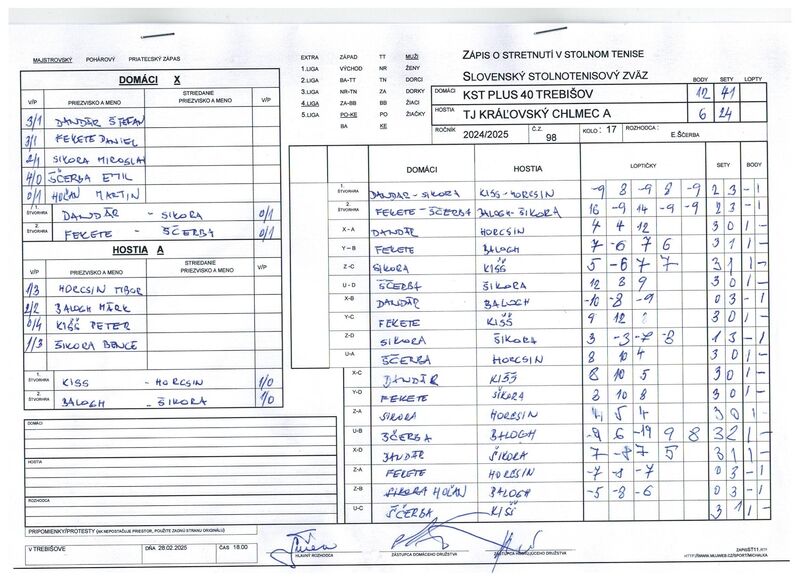 MAJSTROVSKÝ POHÁROVÝ PRIATEĽSKÝ ZÁPAS
DOMÁCI X
V/P PRIEZVISKO A MENO STRIEDANIE PRIEZVISKO A MENO V/P
3/1 DANDÁR ŠTEFAN
3/1 FEKETE DANIEL
2/1 SIKORA MIROSLAV
4/0 ŠČERBA EMIL
0/1 HOĽAN MARTIN
1. ŠTVORHRA DANDÁR - SIKORA 0/1
2. ŠTVORHRA FEKETE - ŠČERBA 0/1
HOSTIA A
V/P PRIEZVISKO A MENO STRIEDANIE PRIEZVISKO A MENO V/P
1/3 HORCSIN TIBOR
2/2 BALOGH MÁRK
0/4 KIŠŠ PETER
1/3 ŠIKORA BENCE
1. ŠTVORHRA KISS - HORCSIN 1/0
2. ŠTVORHRA BALOGH - ŠIKORA 1/0
DOMÁCI
HOSTIA
ROZHODCA
PRIPOMIENKY/PROTESTY (AK NEPOSTAČUJE PRIESTOR, POUŽITE ZADNÚ STRANU ORIGINÁLU)
V TREBIŠOVE DŇA 28.02.2025 ČAS 18.00
EXTRA ZÁPAD TT MUŽI
1.LIGA VÝCHOD NR ŽENY
2.LIGA BA-TT TN DORCI
3.LIGA NR-TN ZA DORKY
4.LIGA ZA-BB BB ŽIACI
5.LIGA PO-KE PO ŽIAČKY
BA KE
ZÁPIS O STRETNUTÍ V STOLNOM TENISE
SLOVENSKÝ STOLNOTENISOVÝ ZVÄZ
BODY SETY LOPTY
DOMÁCI KST PLUS 40 TREBIŠOV 12 41
HOSTIA TJ KRÁĽOVSKÝ CHLMEC A 6 24
ROČNÍK 2024/2025 Č.Z. 98 KOLO : 17 ROZHODCA : E.ŠČERBA
DOMÁCI HOSTIA LOPTIČKY SETY BODY
1. ŠTVORHRA DANDAR-SIKORA KISS-HORCSIN -9 8 -9 8 -9 2 3 - 1
2. ŠTVORHRA FEKETE-ŠČERBA BALOGH-ŠIKORA 16 -9 14 -9 -9 2 3 - 1
X - A DANDÁR HORCSIN 4 4 12 3 0 1 -
Y - B FEKETE BALOGH 7 -6 7 6 3 1 1 -
Z -C SIKORA KIŠŠ 5 -6 7 7 3 1 1 -
U - D ŠČERBA ŠIKORA 12 8 9 3 0 1 -
X-B DANDÁR BALOGH -10 -8 -9 0 3 - 1
Y-C FEKETE KIŠŠ 9 12 8 3 0 1 -
Z-D SIKORA ŠIKORA 3 -3 -7 -8 1 3 - 1
U-A ŠČERBA HORCSIN 8 10 4 3 0 1 -
X-C DANDÁR KIŠŠ 8 10 5 3 0 1 -
Y-D FEKETE ŠIKORA 8 10 8 3 0 1 -
Z-A SIKORA HORCSIN 4 5 4 3 0 1 -
U-B ŠČERBA BALOGH -9 6 -19 9 8 3 2 1 -
X-D DANDÁR ŠIKORA 7 -8 7 5 3 1 1 -
Z-A FEKETE HORCSIN -7 -8 -7 0 3 - 1
Z-B SIKORA HOĽAN BALOGH -5 -8 -6 0 3 - 1
U-C ŠČERBA KIŠŠ 3 1 1 -
HLAVNÝ ROZHODCA ZÁSTUPCA DOMÁCEHO DRUŽSTVA ZÁSTUPCA HOSŤUJÚCEHO DRUŽSTVA